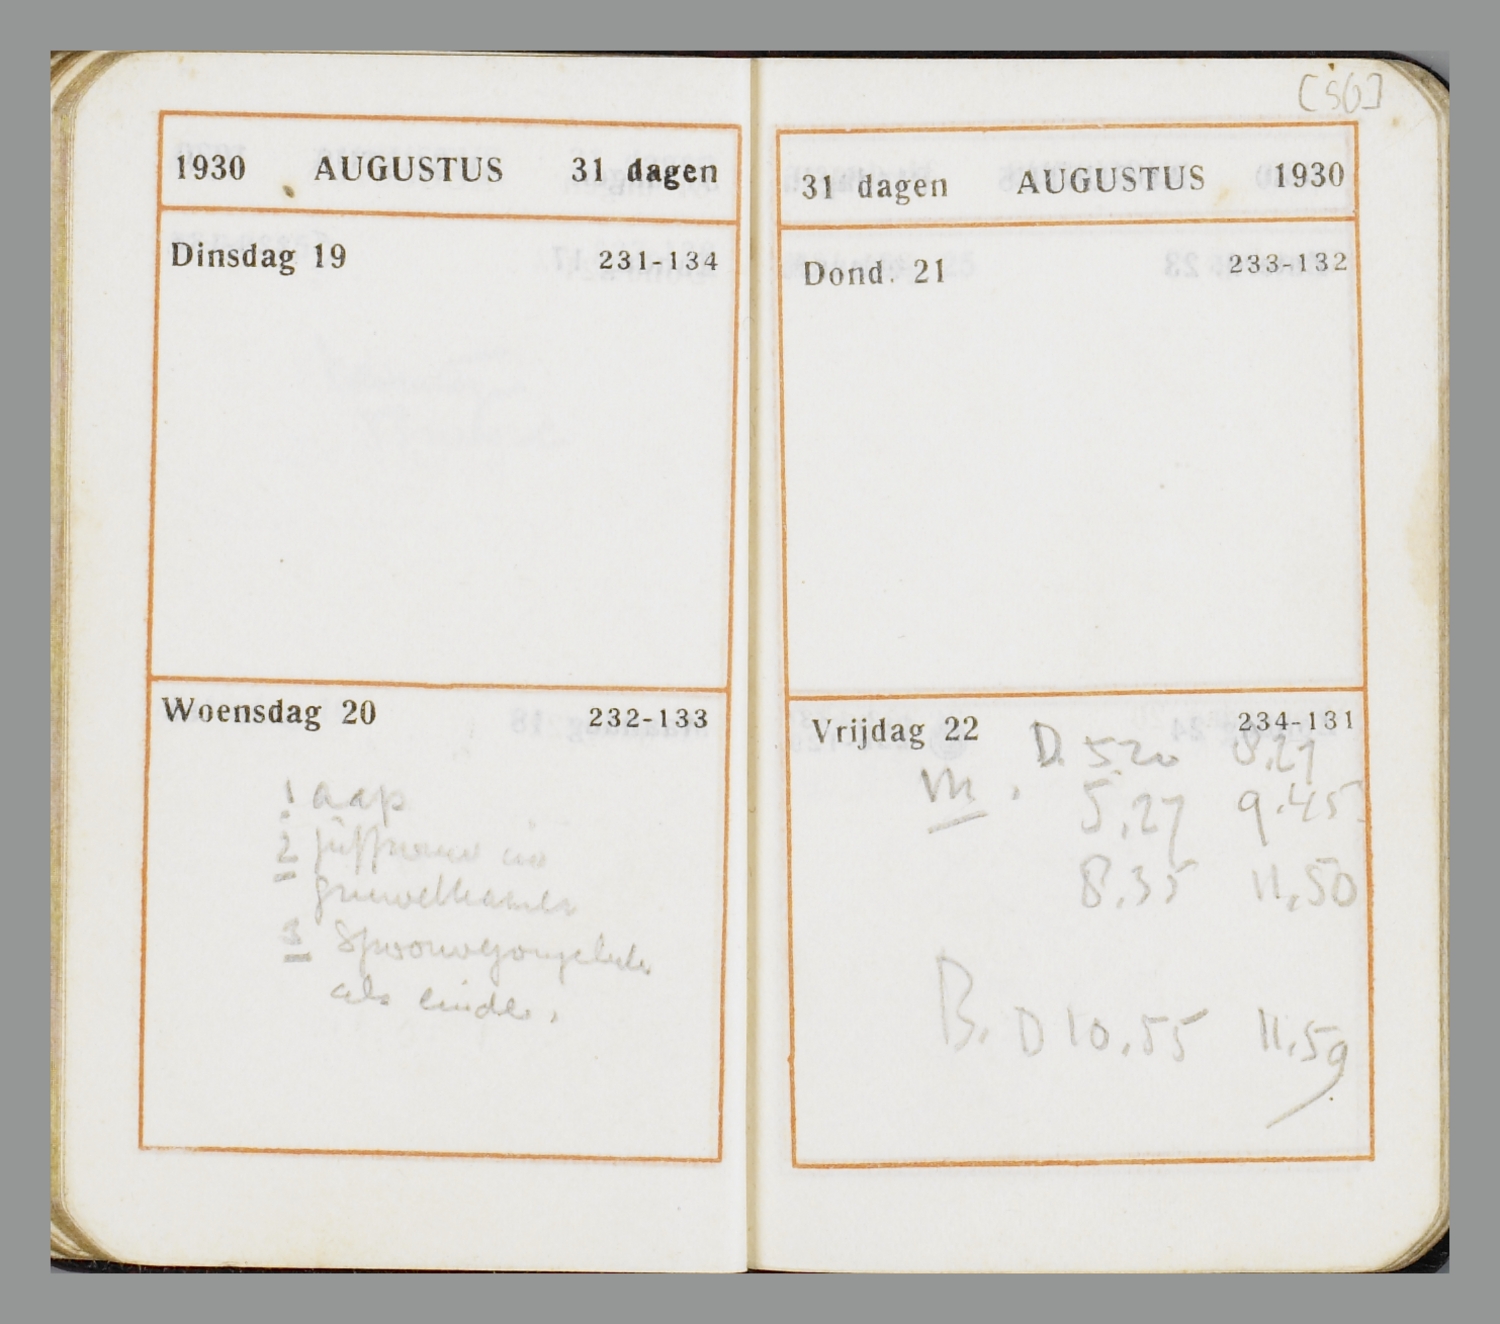 1930 AUGUSTUS 31 dagen
Dinsdag 19 231-134
Woensdag 20 232-133
1 aap
2 juffrouw in
gruwelkamer
3 Spoorwegongeluk
als einde.
[56]
31 dagen AUGUSTUS 1930
Dond. 21 233-132
Vrijdag 22 234-131
D. 5.20 8.27
M. 5.27 9.45
8.35 11.50
B. D 10.55 11.59